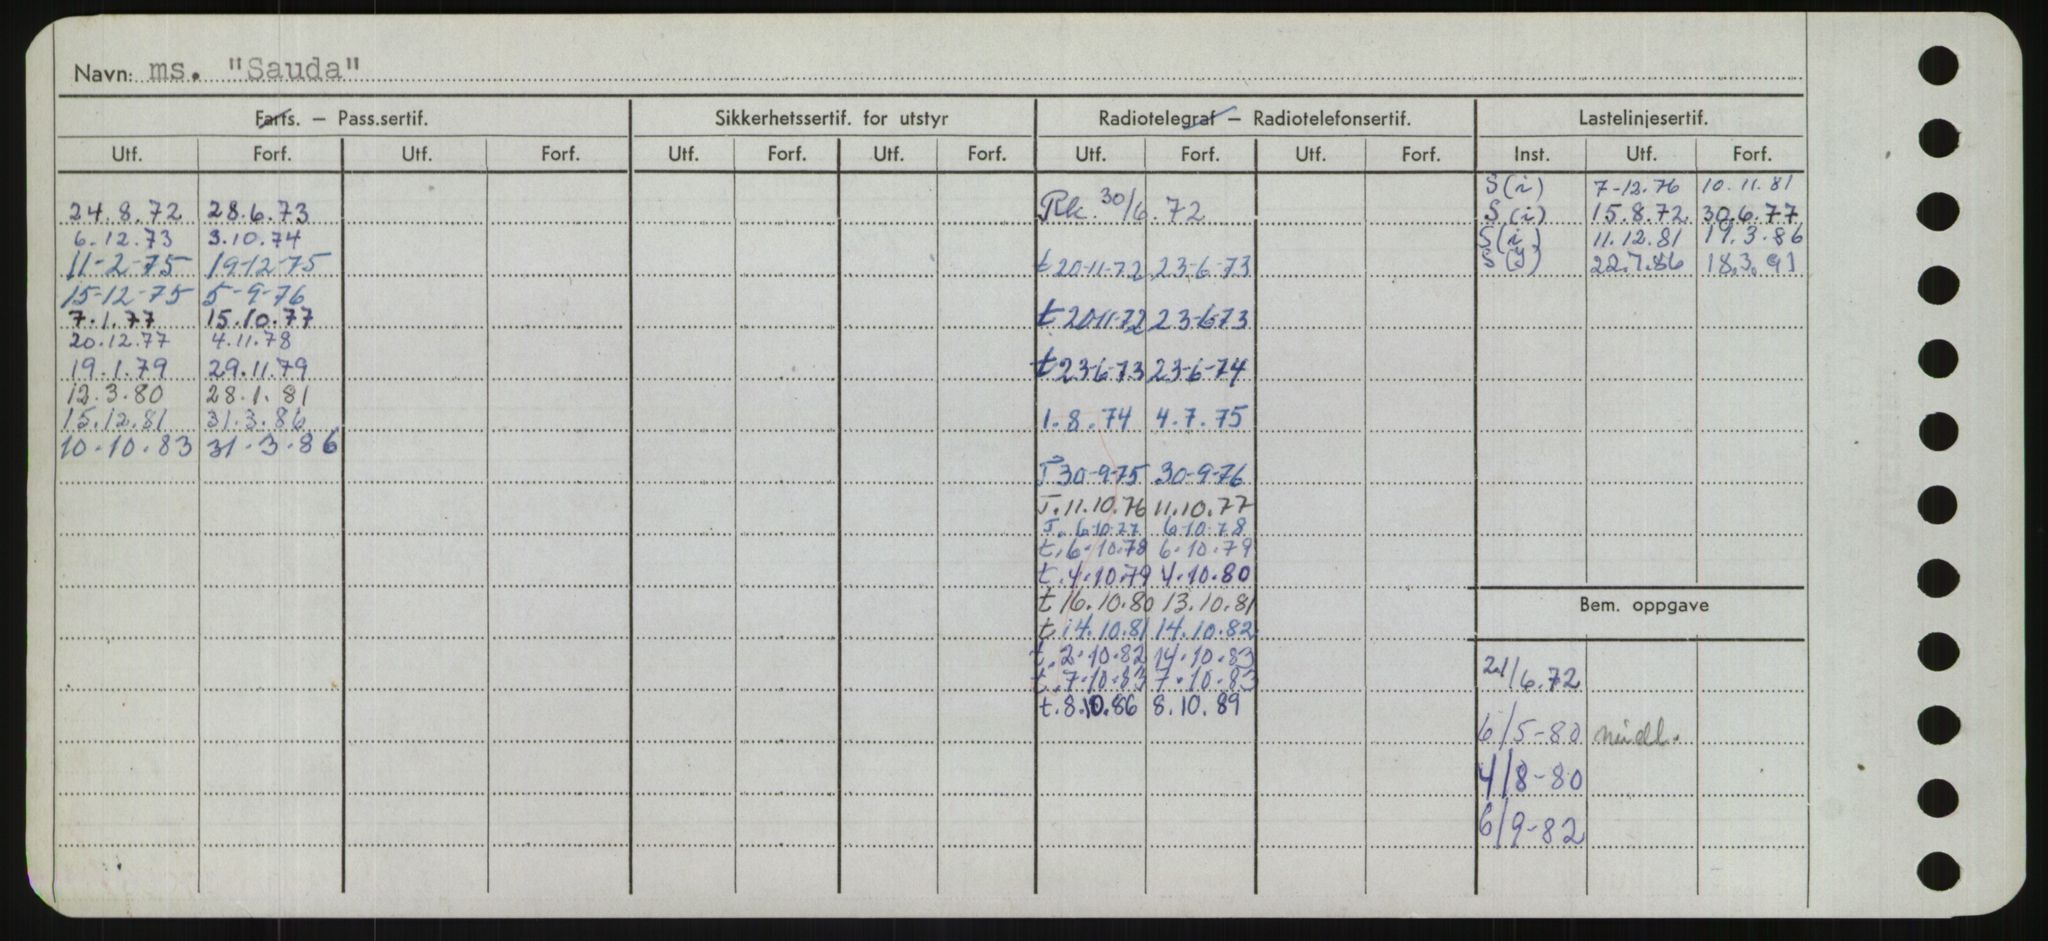 Navn: ms. "Sauda"
Farts. — Pass.sertif. Sikkerhetssertif. for utstyr Radiotelegraf — Radiotelefonsertif. Lastelinjesertif.
Utf. Forf. Utf. Forf. Utf. Forf. Utf. Forf. Utf. Forf. Utf. Forf. Inst. Utf. Forf.
24.8.72 28.6.73
6.12.73 3.10.74
11-2-75 19-12-75
15-12-75 5-9-76
7.1.77 15.10.77
20.12.77 4.11.78
19.1.79 29.11.79
12.3.80 28.1.81
15.12.81 31.3.86
10.10.83 31.3.86
Rk. 30/6.72
t 20-11-72 23-6-73
t 20-11-72 23-6-73
t 23-6-73 23-6-74
1.8.74 4.7.75
T 30-9-75 30-9-76
T. 11.10.76 11.10.77
T. 6.10.77 6.10.78
t. 6.10.78 6.10.79
t. 4.10.79 4.10.80
t 16.10.80 13.10.81
t. 14.10.81 14.10.82
t. 2.10.82 14.10.83
t. 7.10.83 7.10.83
t. 8.10.86 8.10.89
S(i) 7-12.76 10.11.81
S(i) 15.8.72 30.6.77
S(i) 11.12.81 19.3.86
S(y) 22.7.86 18.3.91
Bem. oppgave
21/6.72
6/5-80 midl.
4/8-80
6/9-82